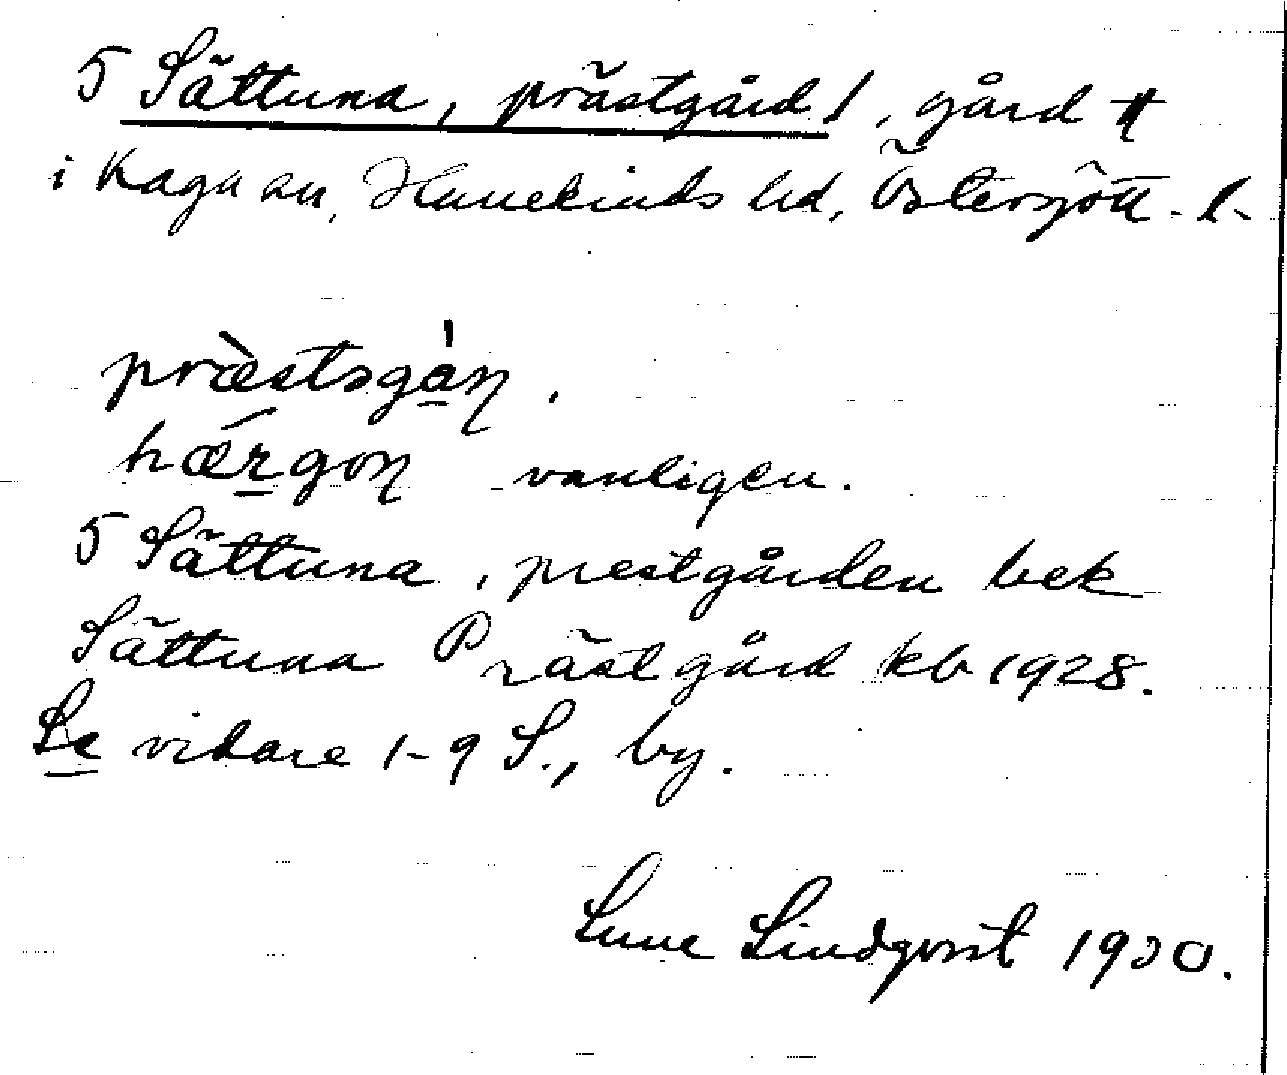 5 Sättuna, prästgård /, gård
i Kaga sn, Hanekinds hd, Östergött. l.
præ̀stsgàn̥.
hǽrgon̥ vanligen.
5 Sättuna, prestgården bek
Sättuna Prästgård kb 1928.
Se vidare 1-9 S., by.
Sune Lindqvist 1930.